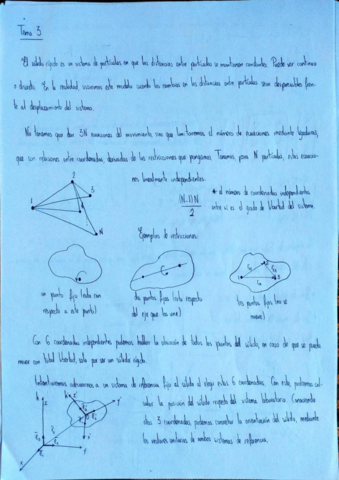 Tema 3
El sólido rígido es un sistema de partículas en que las distancias entre partículas se mantienen constantes. Puede ser continuo
o discreto. En la realidad, usaremos este modelo cuando los cambios en las distancias entre partículas sean despreciables fren
te al desplazamiento del sistema.
No tenemos que dar 3N ecuaciones del movimiento, sino que limitaremos el número de ecuaciones mediante ligaduras,
que son relaciones entre coordenadas, derivadas de las restricciones que pongamos. Tenemos, para N partículas, estas ecuacio
nes linealmente independientes:
(N-1)N
2
* el número de coordenadas independientes
entre sí es el grado de libertad del sistema.
1
2
3
N
Ejemplos de restricciones:
un punto fijo (rota con
respecto a este punto)
dos puntos fijos (rota respecto
del eje que los une)
tres puntos fijos (no se
mueve)
Con 6 coordenadas independientes podemos hallar la situación de todos los puntos del sólido, en caso de que se pueda
mover con total libertad, solo por ser un sólido rígido.
Habitualmente asociaremos a un sistema de referencia fijo al sólido al elegir estas 6 coordenadas. Con esto, podremos cal
cular la posición del sólido respecto del sistema laboratorio. Conociendo
estas 3 coordenadas, podemos conocer la orientación del sólido, mediante
los vectores unitarios de ambos sistemas de referencia.